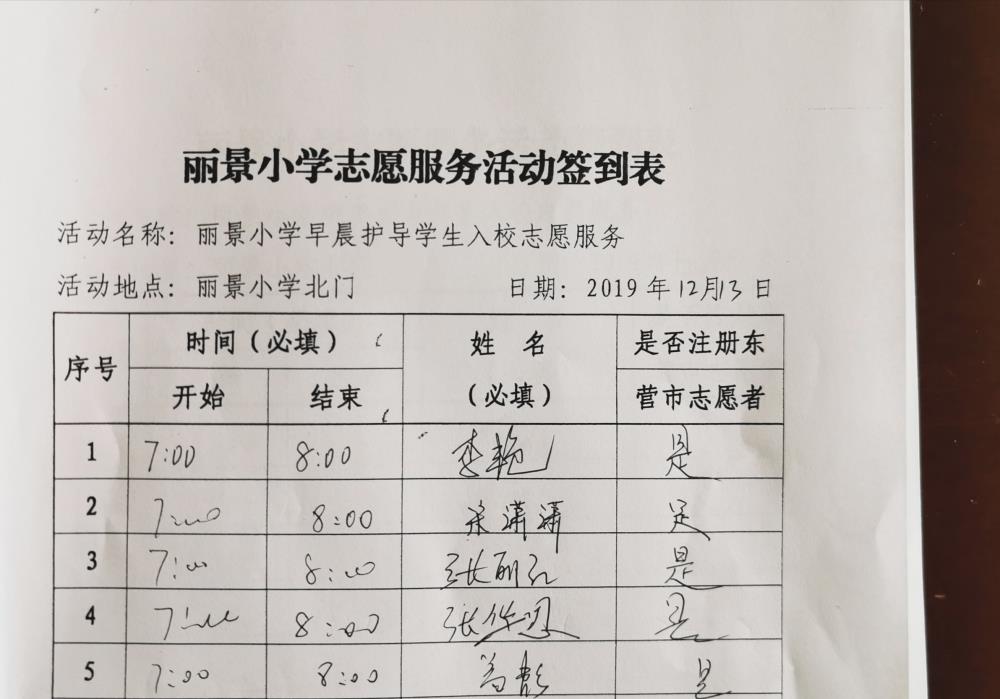 丽景小学志愿服务活动签到表
活动名称：丽景小学早晨护导学生入校志愿服务
活动地点：丽景小学北门 日期：2019年12月13日
序号 时间（必填） 姓名（必填） 是否注册东营市志愿者
开始 结束
1 7:00 8:00 李艳 是
2 7:00 8:00 潇潇 是
3 7:00 8:00 张丽红 是
4 7:00 8:00 张 是
5 7:00 8:00 是